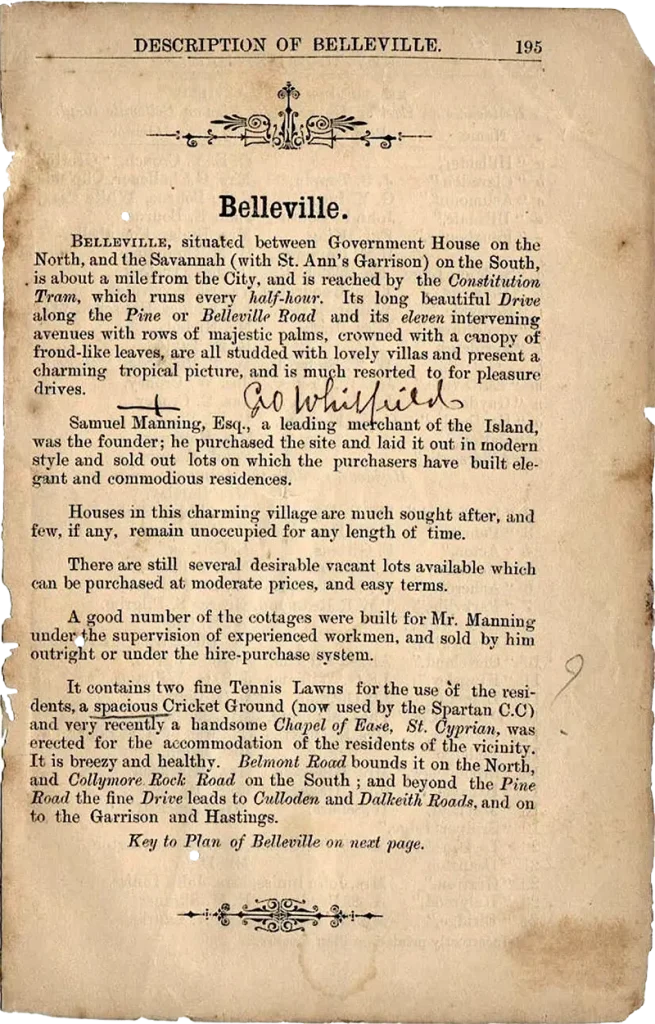 DESCRIPTION OF BELLEVILLE. 195
Belleville.
BELLEVILLE, situated between Government House on the
North, and the Savannah (with St. Ann's Garrison) on the South,
is about a mile from the City, and is reached by the Constitution
Tram, which runs every half-hour. Its long beautiful Drive
along the Pine or Belleville Road and its eleven intervening
avenues with rows of majestic palms, crowned with a canopy of
frond-like leaves, are all studded with lovely villas and present a
charming tropical picture, and is much resorted to for pleasure
drives.
Geo Whitfield
Samuel Manning, Esq., a leading merchant of the Island,
was the founder; he purchased the site and laid it out in modern
style and sold out lots on which the purchasers have built ele-
gant and commodious residences.
Houses in this charming village are much sought after, and
few, if any, remain unoccupied for any length of time.
There are still several desirable vacant lots available which
can be purchased at moderate prices, and easy terms.
A good number of the cottages were built for Mr. Manning
under the supervision of experienced workmen, and sold by him
outright or under the hire-purchase system.
It contains two fine Tennis Lawns for the use of the resi-
dents, a spacious Cricket Ground (now used by the Spartan C.C)
and very recently a handsome Chapel of Ease, St. Cyprian, was
erected for the accommodation of the residents of the vicinity.
It is breezy and healthy. Belmont Road bounds it on the North,
and Collymore Rock Road on the South; and beyond the Pine
Road the fine Drive leads to Culloden and Dalkeith Roads, and on
to the Garrison and Hastings.
Key to Plan of Belleville on next page.